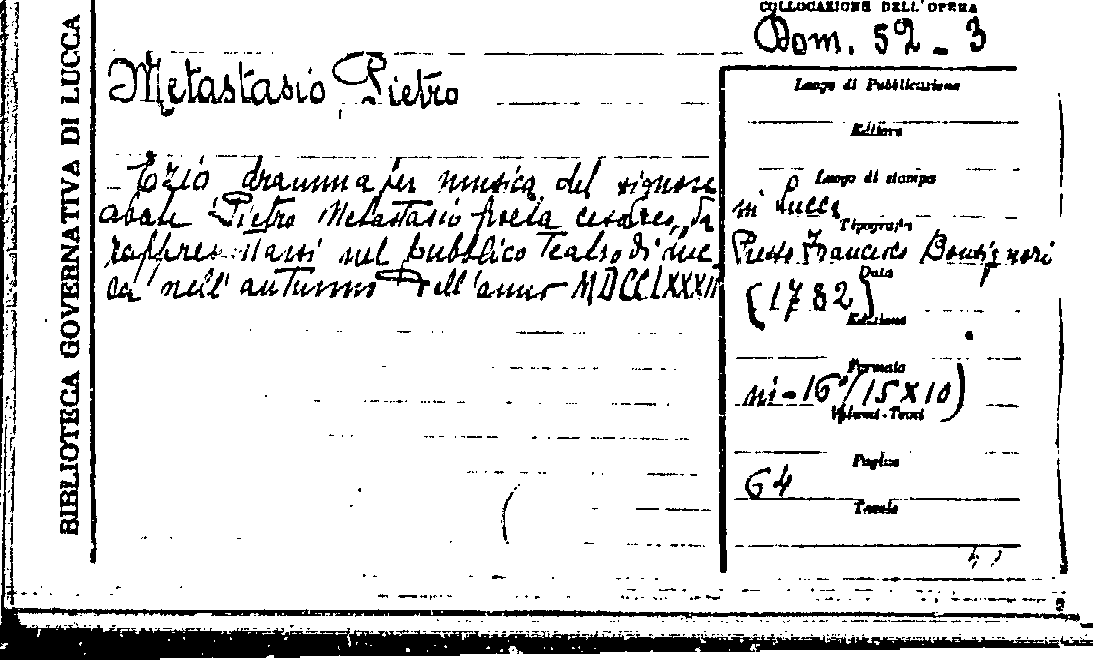 COLLOCAZIONE DELL'OPERA
Dom. 52 - 3
BIBLIOTECA GOVERNATIVA DI LUCCA
Metastasio Pietro
Ezio dramma per musica del signore
abate Pietro Metastasio poeta cesareo, da
rappresentarsi nel pubblico Teatro di Luc
ca nell'autunno dell'anno MDCCLXXXII
Luogo di Pubblicazione
Editore
Luogo di stampa
in Lucca
Tipografo
Presso Francesco Bonsignori
Data
(1782)
Edizione
Formato
in-16°(15x10)
Volumi-Tomi
Pagine
64
Tavole